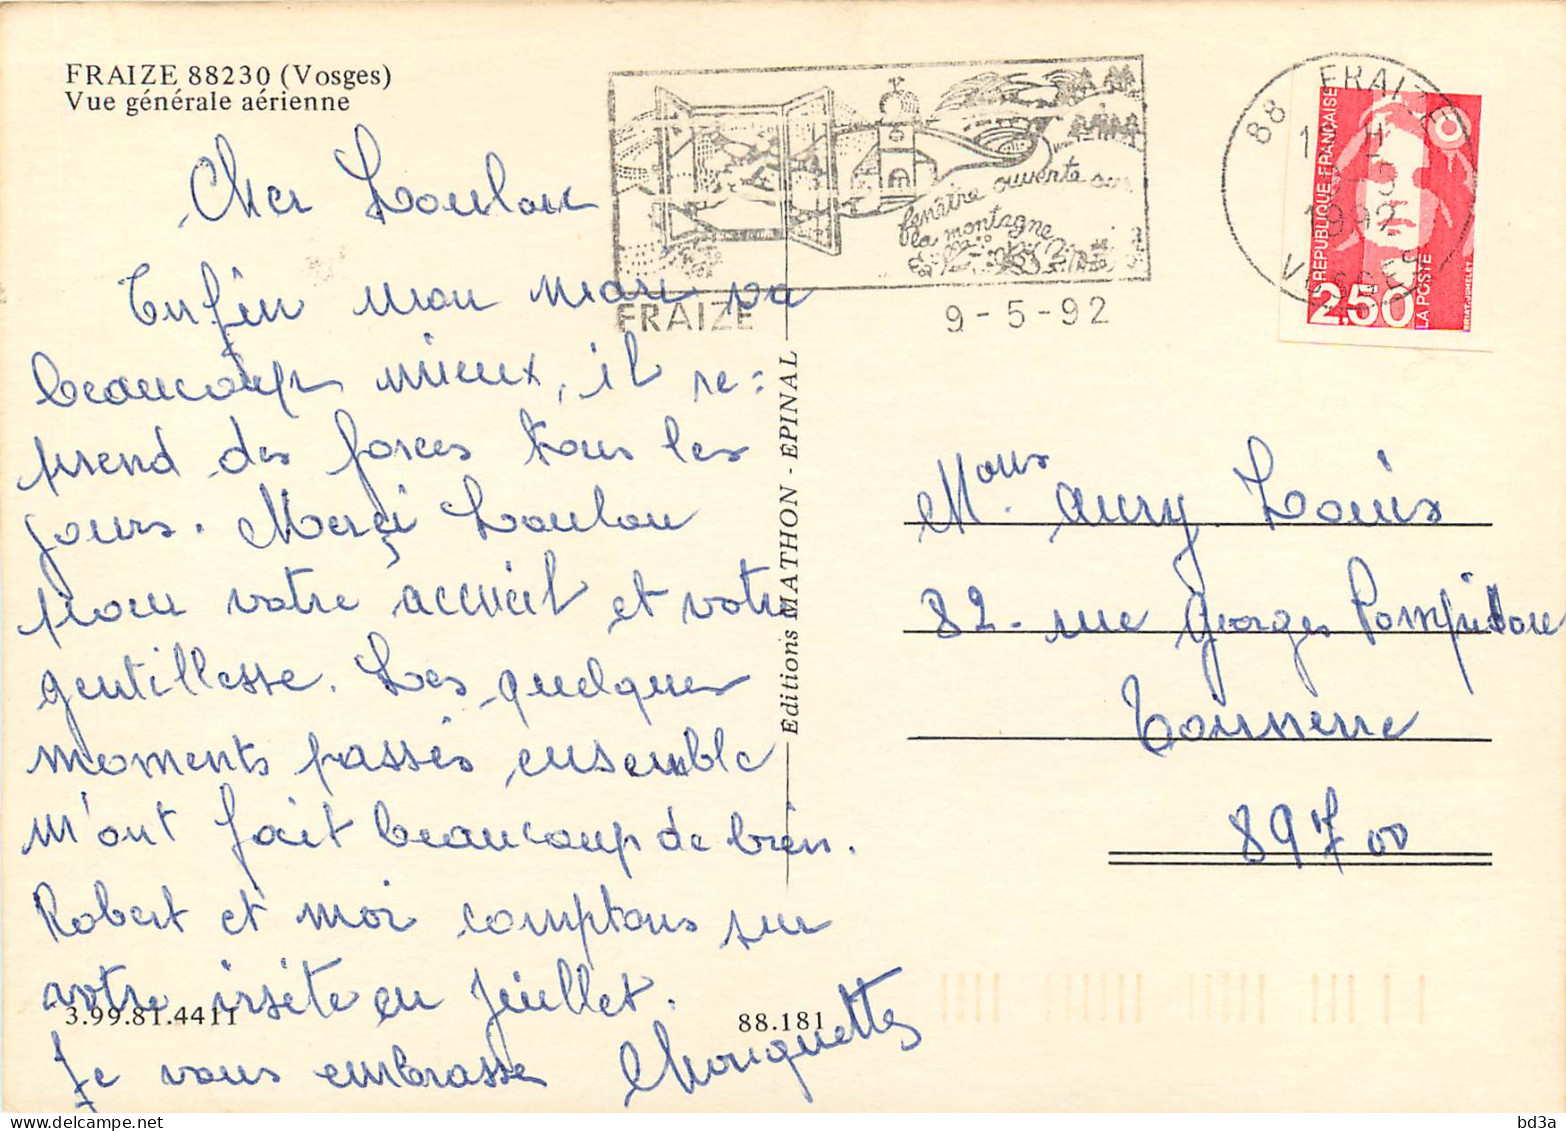 FRAIZE 88230 (Vosges)
Vue générale aérienne
Cher Loulou
Enfin mon mari va
beaucoup mieux, il re=
prend des forces tous les
jours. Merçi Loulou
pour votre accueil et votre
gentillesse. Les quelques
moments passés ensemble
m'ont fait beaucoup de bien.
Robert et moi comptons sur
votre visite en Juillet.
3.99.81.4411
88.181
Je vous embrasse Chouquette
Editions MATHON - EPINAL
fenêtre ouverte sur
la montagne
FRAIZE
9-5-92
88 FRAIZE
1992
VOSGES
REPUBLIQUE FRANÇAISE
2,50
LA POSTE
BRIAT-JUMELET
Mous. Aury Louis
82. rue Georges Pompidou
Tonnerre
89700
delcampe.net
bd3a